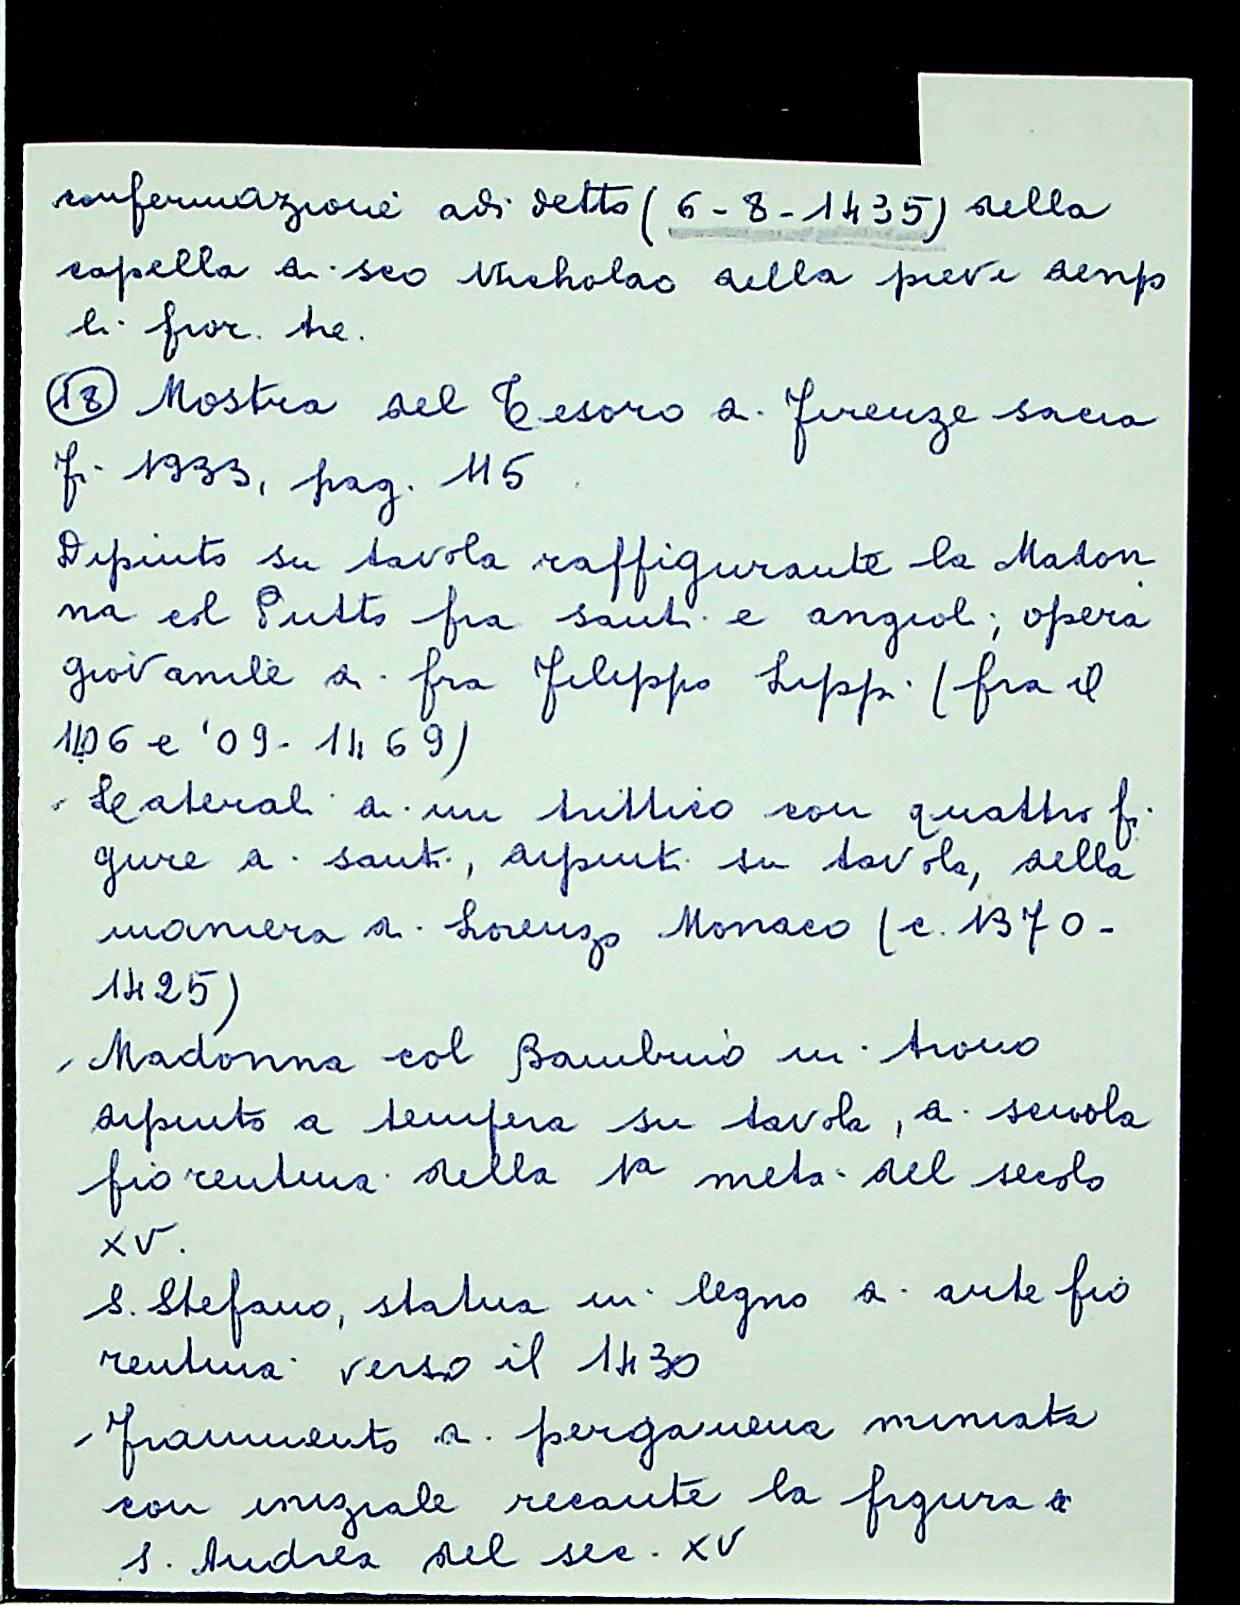 confermazione adi detto (6-8-1435) della
capella di sco Nicholao della pieve denp
li fior. tre.
(18) Mostra del Tesoro di Firenze sacra
Fi 1933, pag. 115
Dipinto su tavola raffigurante la Madon
na col Putto fra santi e angioli; opera
giovanile di fra Filippo Lippi (fra il
1406 e '09-1469)
Laterali di un trittico con quattro fi
gure di santi, dipinti su tavola, della
maniera di Lorenzo Monaco (c. 1370-
1425)
Madonna col Bambino in trono
dipinto a tempera su tavola, di scuola
fiorentina della 1a metà del secolo
XV.
S. Stefano, statua in legno di arte fio
rentina verso il 1430
Frammento di pergamena miniata
con iniziale recante la figura di
S. Andrea del sec. XV